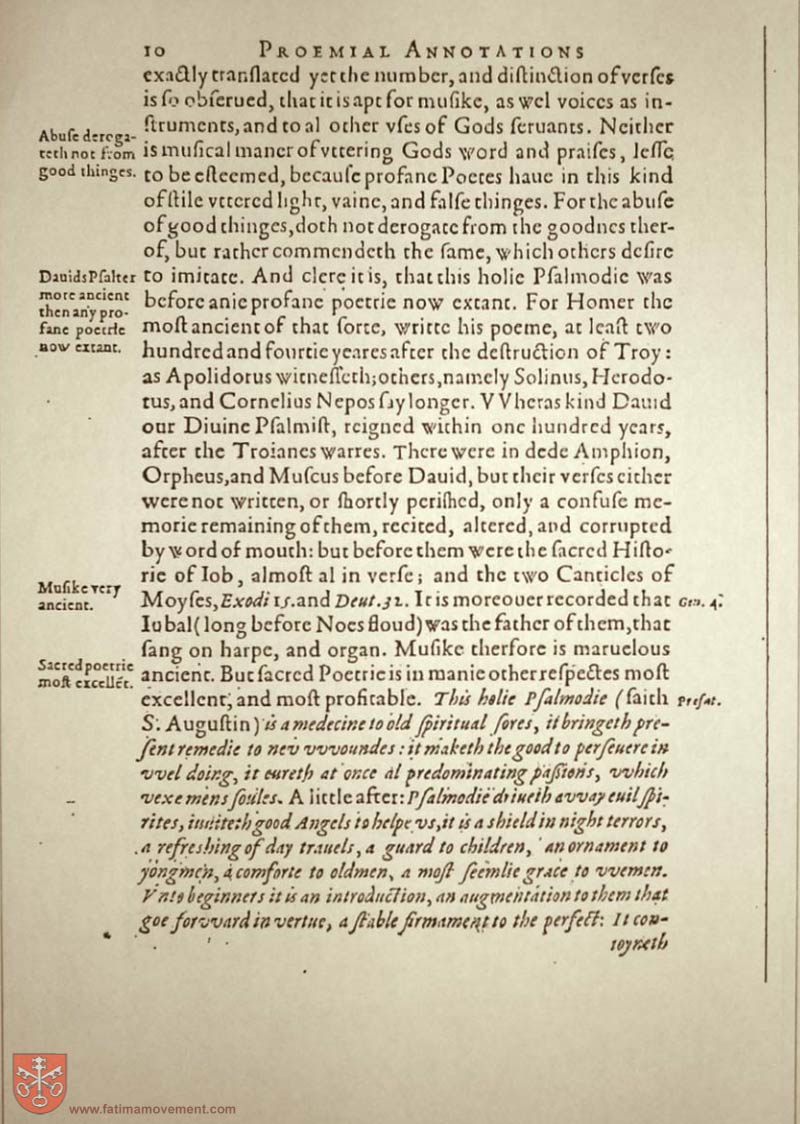 10 PROEMIAL ANNOTATIONS
exactly tranſlated yet the number, and diſtinction of verſes
is ſo obſerued, that it is apt for muſike, as wel voices as in-
ſtruments, and to al other vſes of Gods ſeruants. Neither
Abuſe deroga-
teth not from
good thinges.
is muſical maner of vttering Gods word and praiſes, leſſe
to be eſteemed, becauſe profane Poetes haue in this kind
of ſtile vttered light, vaine, and falſe thinges. For the abuſe
of good thinges, doth not derogate from the goodnes ther-
of, but rather commendeth the ſame, which others deſire
Dauids Pſalter
more ancient
then any pro-
fane poetrie
now extant.
to imitate. And clere it is, that this holie Pſalmodie was
before anie profane poetrie now extant. For Homer the
moſt ancient of that ſorte, writte his poeme, at leaſt two
hundred and fourtie yeares after the deſtruction of Troy:
as Apolidorus witneſſeth; others, namely Solinus, Herodo-
tus, and Cornelius Nepos ſay longer. VVheras kind Dauid
our Diuine Pſalmiſt, reigned within one hundred years,
after the Troianes warres. There were in dede Amphion,
Orpheus, and Muſeus before Dauid, but their verſes either
were not written, or ſhortly periſhed, only a confuſe me-
morie remaining of them, recited, altered, and corrupted
by word of mouth: but before them were the ſacred Hiſto-
rie of Iob, almoſt al in verſe; and the two Canticles of
Muſike very
ancient.
Moyſes, Exodi 15. and Deut. 32. It is moreouer recorded that
Gen. 4.
Iubal (long before Noes floud) was the father of them, that
ſang on harpe, and organ. Muſike therfore is maruelous
Sacred poetrie
moſt excellēt.
ancient. But ſacred Poetrie is in manie other reſpectes moſt
excellent, and moſt profitable. This holie Pſalmodie (ſaith
Prefat.
S. Auguſtin) is a medecine to old ſpiritual ſores, it bringeth pre-
ſent remedie to nevv vvoundes: it maketh the good to perſeuere in
vvel doing, it cureth at once al predominating paſſions, vvhich
vexe mens ſoules. A little after: Pſalmodie driueth avvay euil ſpi-
rites, inuiteth good Angels to helpe vs, it is a shield in night terrors,
a refreshing of day trauels, a guard to children, an ornament to
yongmen, a comforte to oldmen, a moſt ſeemlie grace to vvemen.
Vnto beginners it is an introduction, an augmentation to them that
goe forvvard in vertue, a ſtable firmament to the perfect: It con-
ioyneth
www.fatimamovement.com